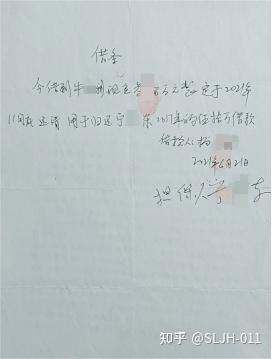 借条
今借到牛 现金 万元整 定于2021年
11月底还清 用于归还宁 东2017年的伍拾万借款
借款人 杨
2021年6月21日
担保人 宁 东
知乎 @SLJH-011